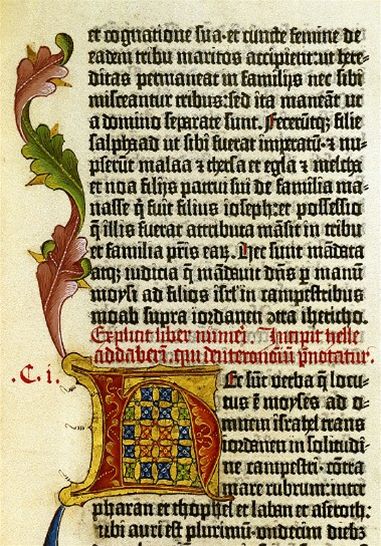 et cognatione sua · et cuncte femine de
eadem tribu maritos accipient: ut here-
ditas permaneat in familijs nec sibi
misceantur tribus: sed ita maneãt ut
a domino separate sunt. Feceruntq; filie
salphaad ut sibi fuerat imperatũ: & nu-
pserũt malaa & thersa et egla & melcha
et noa filijs patrui sui de familia ma-
nasse q̃ fuit filius ioseph: et possessio
q̃ illis fuerat attributa mãsit in tribu
et familia pr̃is earꝝ. Hec sunt mãdata
atq; iudicia q̃ mãdavit dñs p̱ manũ
moysi ad filios isrl̃ in campestribus
moab supra iordanẽ ↄ̃tra ihericho.
Explicit liber numeri. Incipit helle
addabarim qui deuteronomiũ p̃notatur.
.C. i.
Hec sũt verba q̃ locu-
tus ẽ moyses ad o-
mnem israhel trans
iordanem in solitudi-
ne campestri · cõtra
mare rubrum: inter
pharan et thophel et laban et aseroth:
ubi auri est plurimũ: undecim diebꝫ